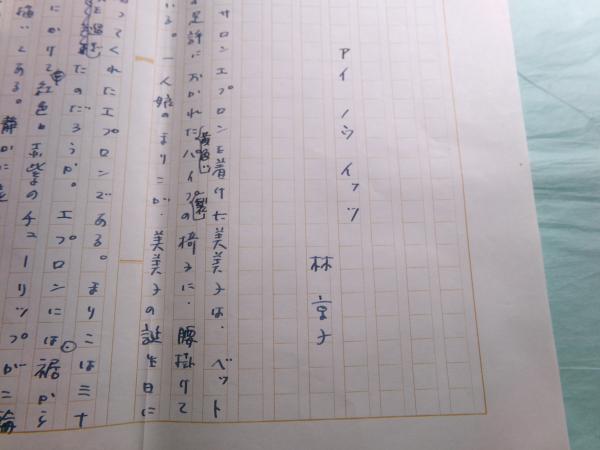 アイ ノウ イッツ
林 京子
サロンエプロンを着けた美美子は、ベット
足許におかれた黄色いパイプ製の椅子に、腰掛けて
いる。一人娘のまりこが、美美子の誕生日に
ってくれたエプロンである。まりこは三十
たのだろうか。エプロンには裾から
にかけて紅色と赤紫のチューリップが二輪
である。静かに